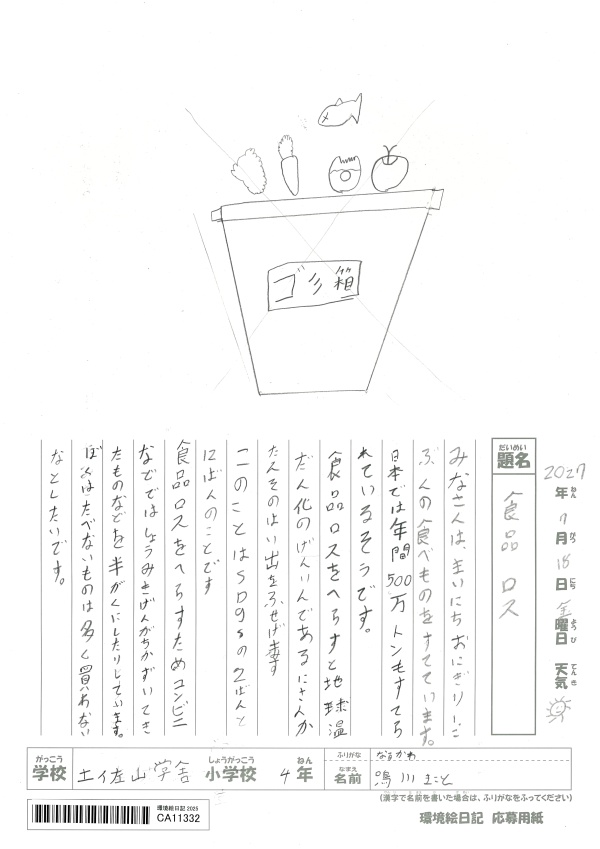 ゴミ箱
2027年7月18日金曜日 天気
ねん がつ にち ようび てんき
だいめい
題名 食品ロス
みなさんは、まいにちおにぎり一こ
ぶんの食べものをすてています。
日本では年間500万トンもすてら
れているそうです。
食品ロスをへらすと地球温
だん化のげんいんであるにさんか
たんそのはい出をふせげます
このことはSDgsの2ばんと
にばんのことです
食品ロスをへらすためコンビニ
などではしょうみきげんがちかずいてき
たものなどを半がくにしたりしています。
ぼくはたべないものは多く買わない
などしたいです。
がっこう しょうがっこう ねん
学校 土佐山学舎 小学校 4年
ふりがな なるかわ
なまえ
名前 鳴川まこと
(漢字で名前を書いた場合は、ふりがなをふってください)
環境絵日記 2025
CA11332
環境絵日記 応募用紙